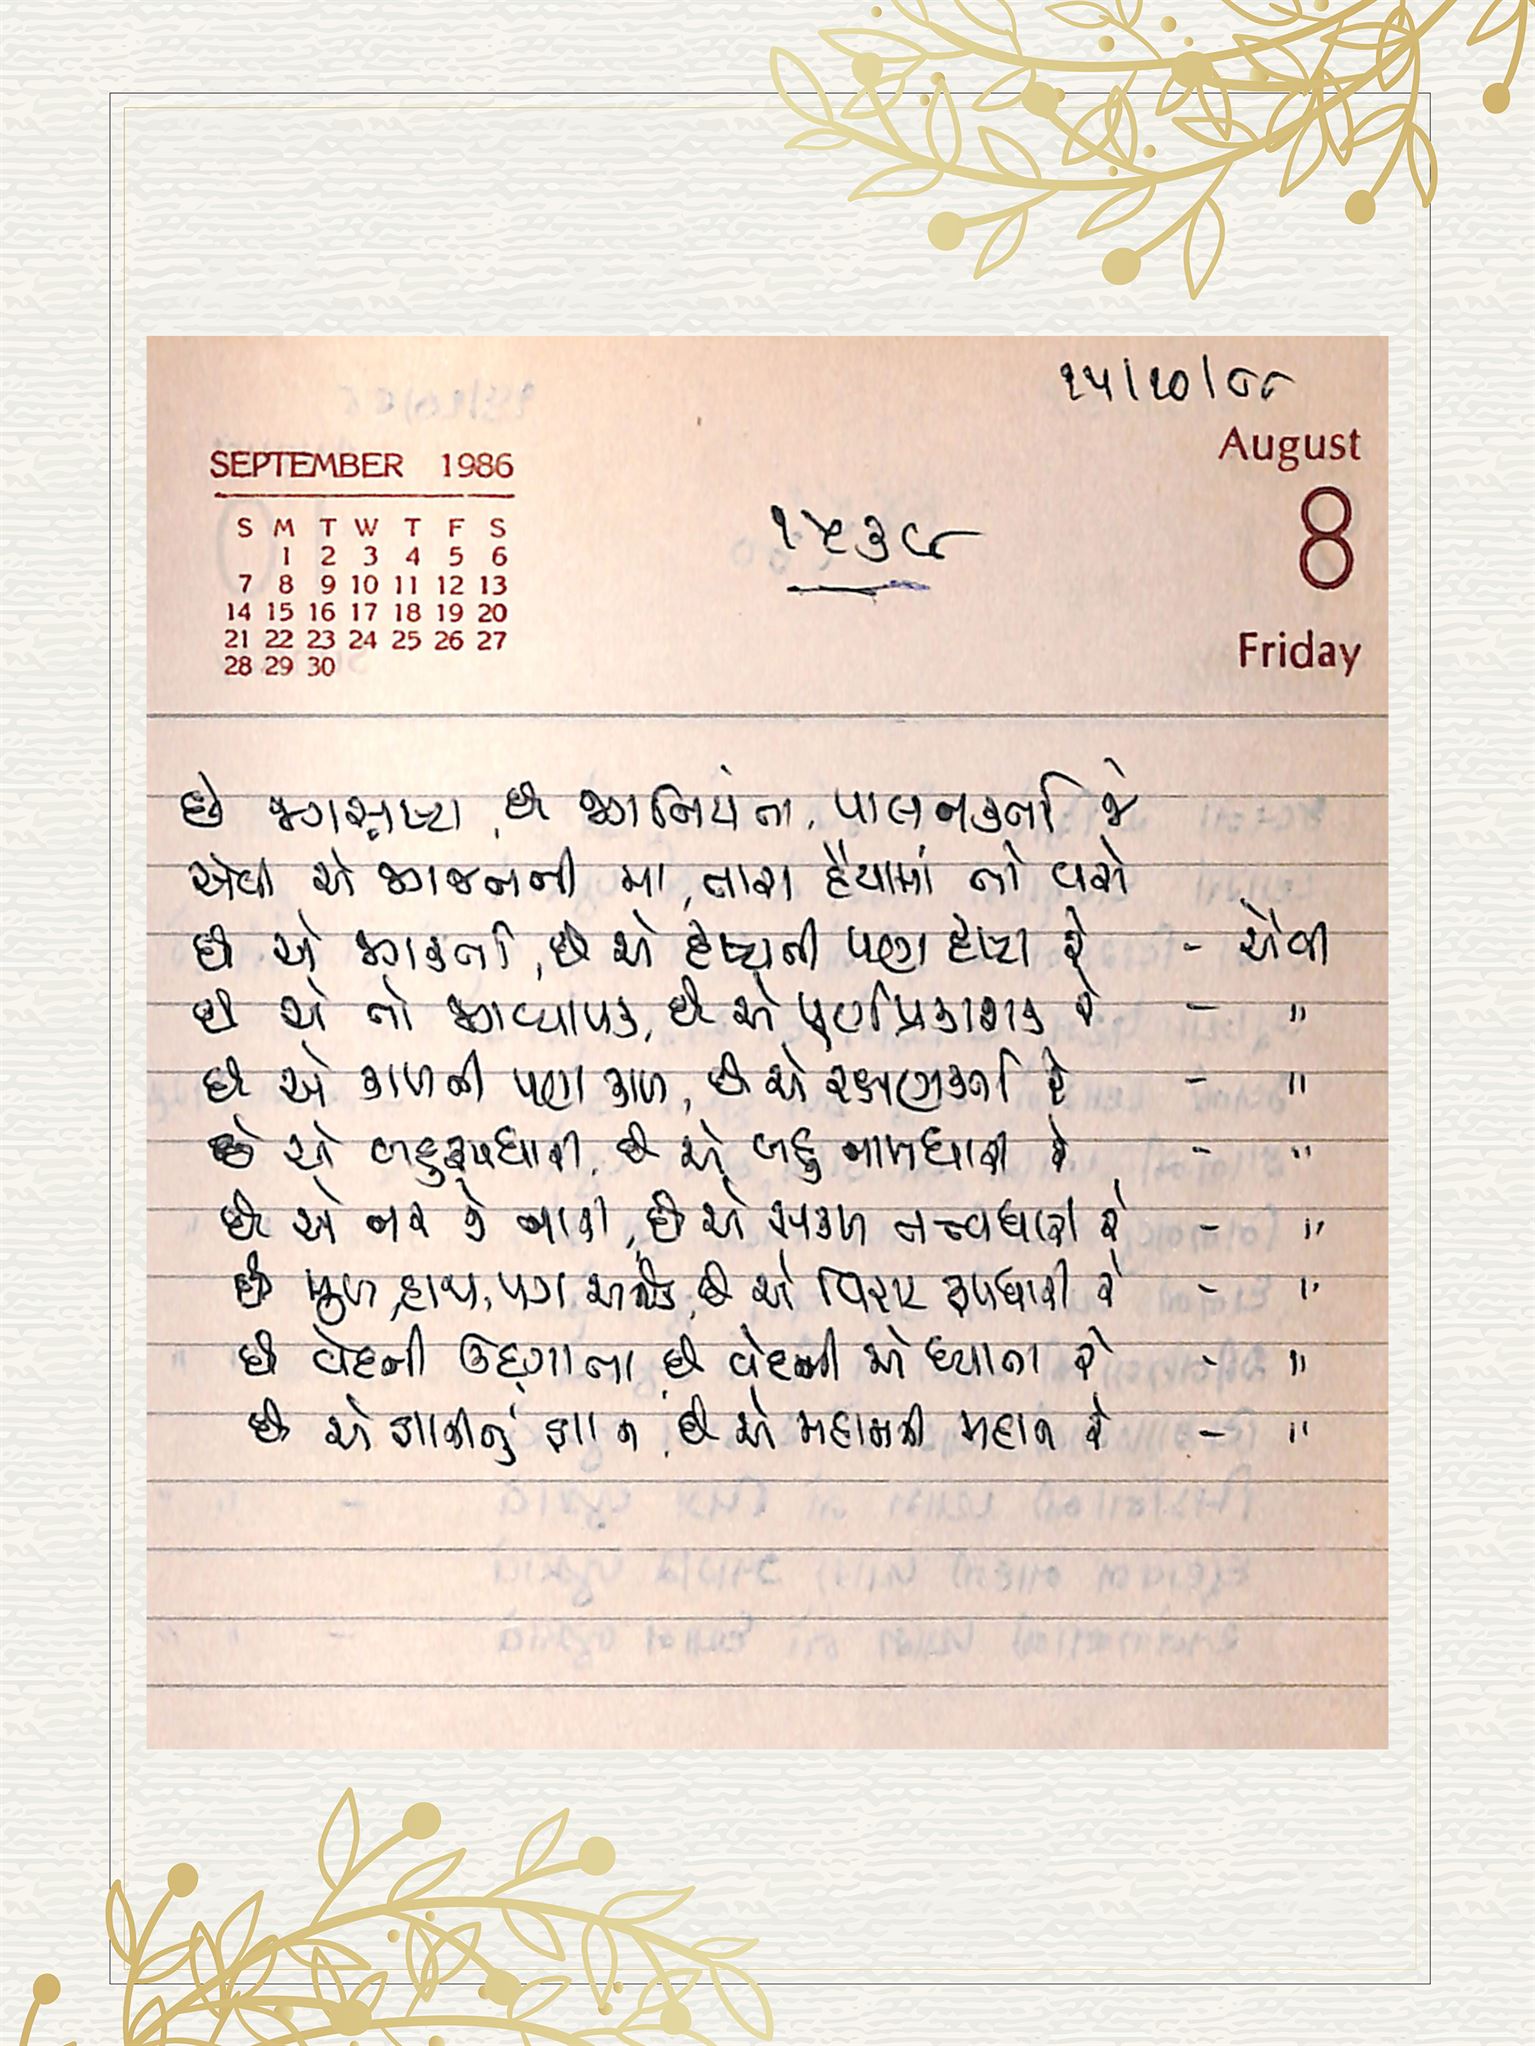 ૧૫/૧૦/૮૮
August
8
Friday
SEPTEMBER 1986
S M T W T F S
1 2 3 4 5 6
7 8 9 10 11 12 13
14 15 16 17 18 19 20
21 22 23 24 25 26 27
28 29 30
૧૫૩૮
છે જગસૃષ્ટા, છે જગનિયંતા, પાલનકર્તા જે
એવી એ જગજનની મા, તારા હૈયામાં તો વસે
છે એ જગકર્તા, છે એ દૃષ્ટાની પણ દૃષ્ટા રે - એવી
છે એ તો જગવ્યાપક, છે એ પૂર્ણપ્રકાશક રે - "
છે એ કાળની પણ કાળ, છે એ રક્ષણકર્તા રે - "
છે એ બહુરૂપધારી, છે એ બહુ નામધારી રે - "
છે એ નર કે નારી, છે એ સકળ તત્ત્વધારી રે - "
છે મુખ, હાથ, પગ અનેક, છે એ વિરાટ રૂપધારી રે - "
છે વેદની ઉદ્દગાતા, છે વેદની એ ધ્યાતા રે - "
છે એ જ્ઞાનીનું જ્ઞાન, છે એ મહામંત્રી મહાન રે - "